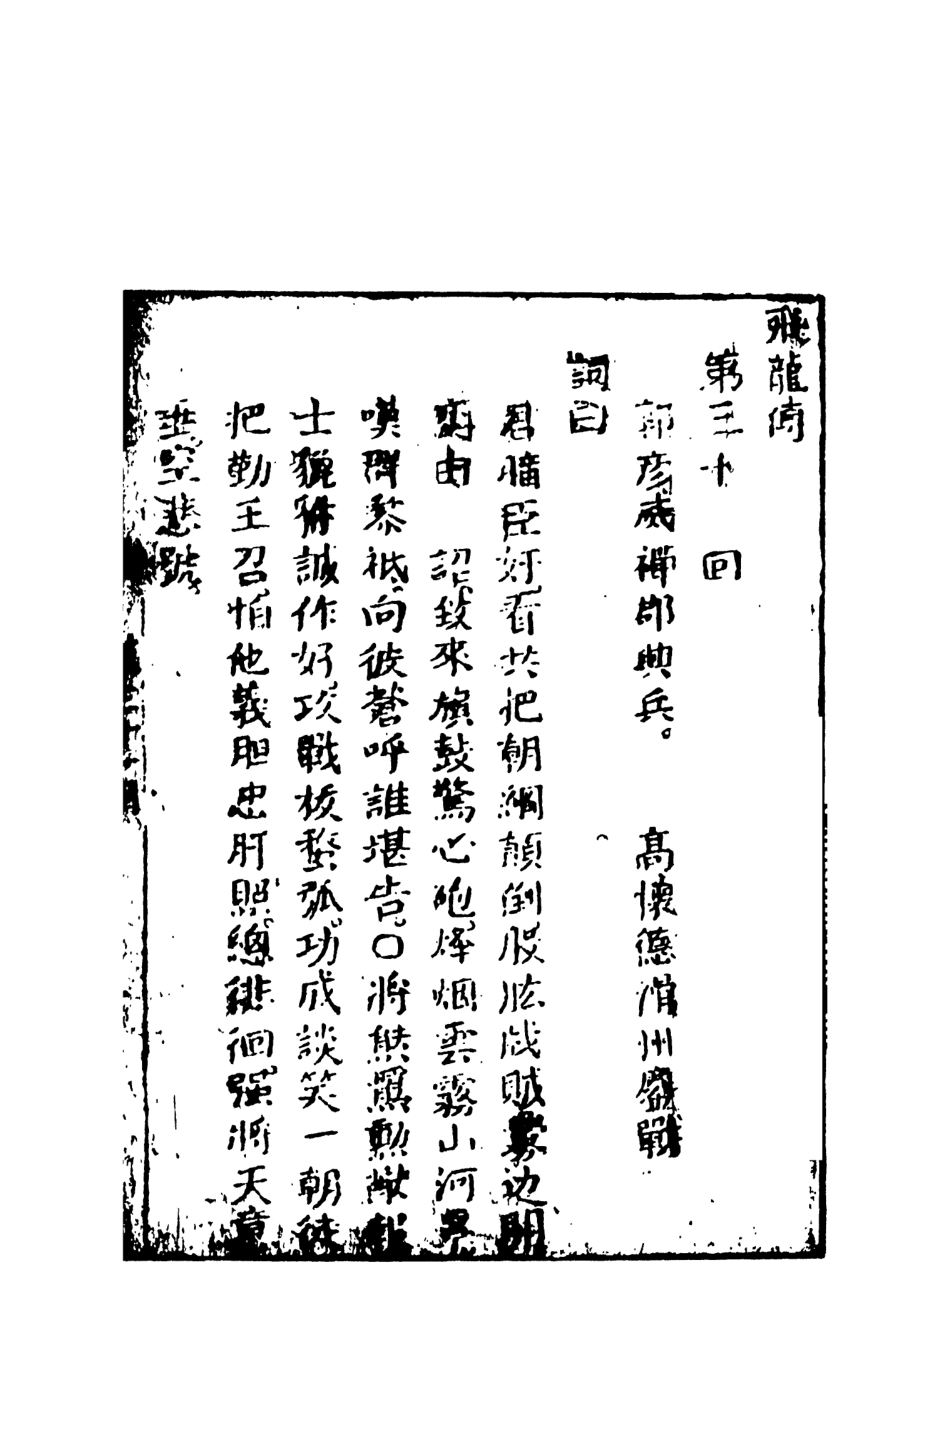 飛龍傳
第三十　回
郭彥威禪郡興兵。　高懷德滑州鏖戰
詞曰
君懦臣奸看共把朝綱顛倒股肱戕賊釁边開
由　詔致來旗鼓驚心炮烽烟雲霧山河
嘆群黎祇向彼蒼呼誰堪告。〇將熊羆勲猷
士貔貅誠作好攻戰枝蝥弧功成談笑一朝
把勤王召怕他義胆忠肝照總徘徊强將天章
空悲號